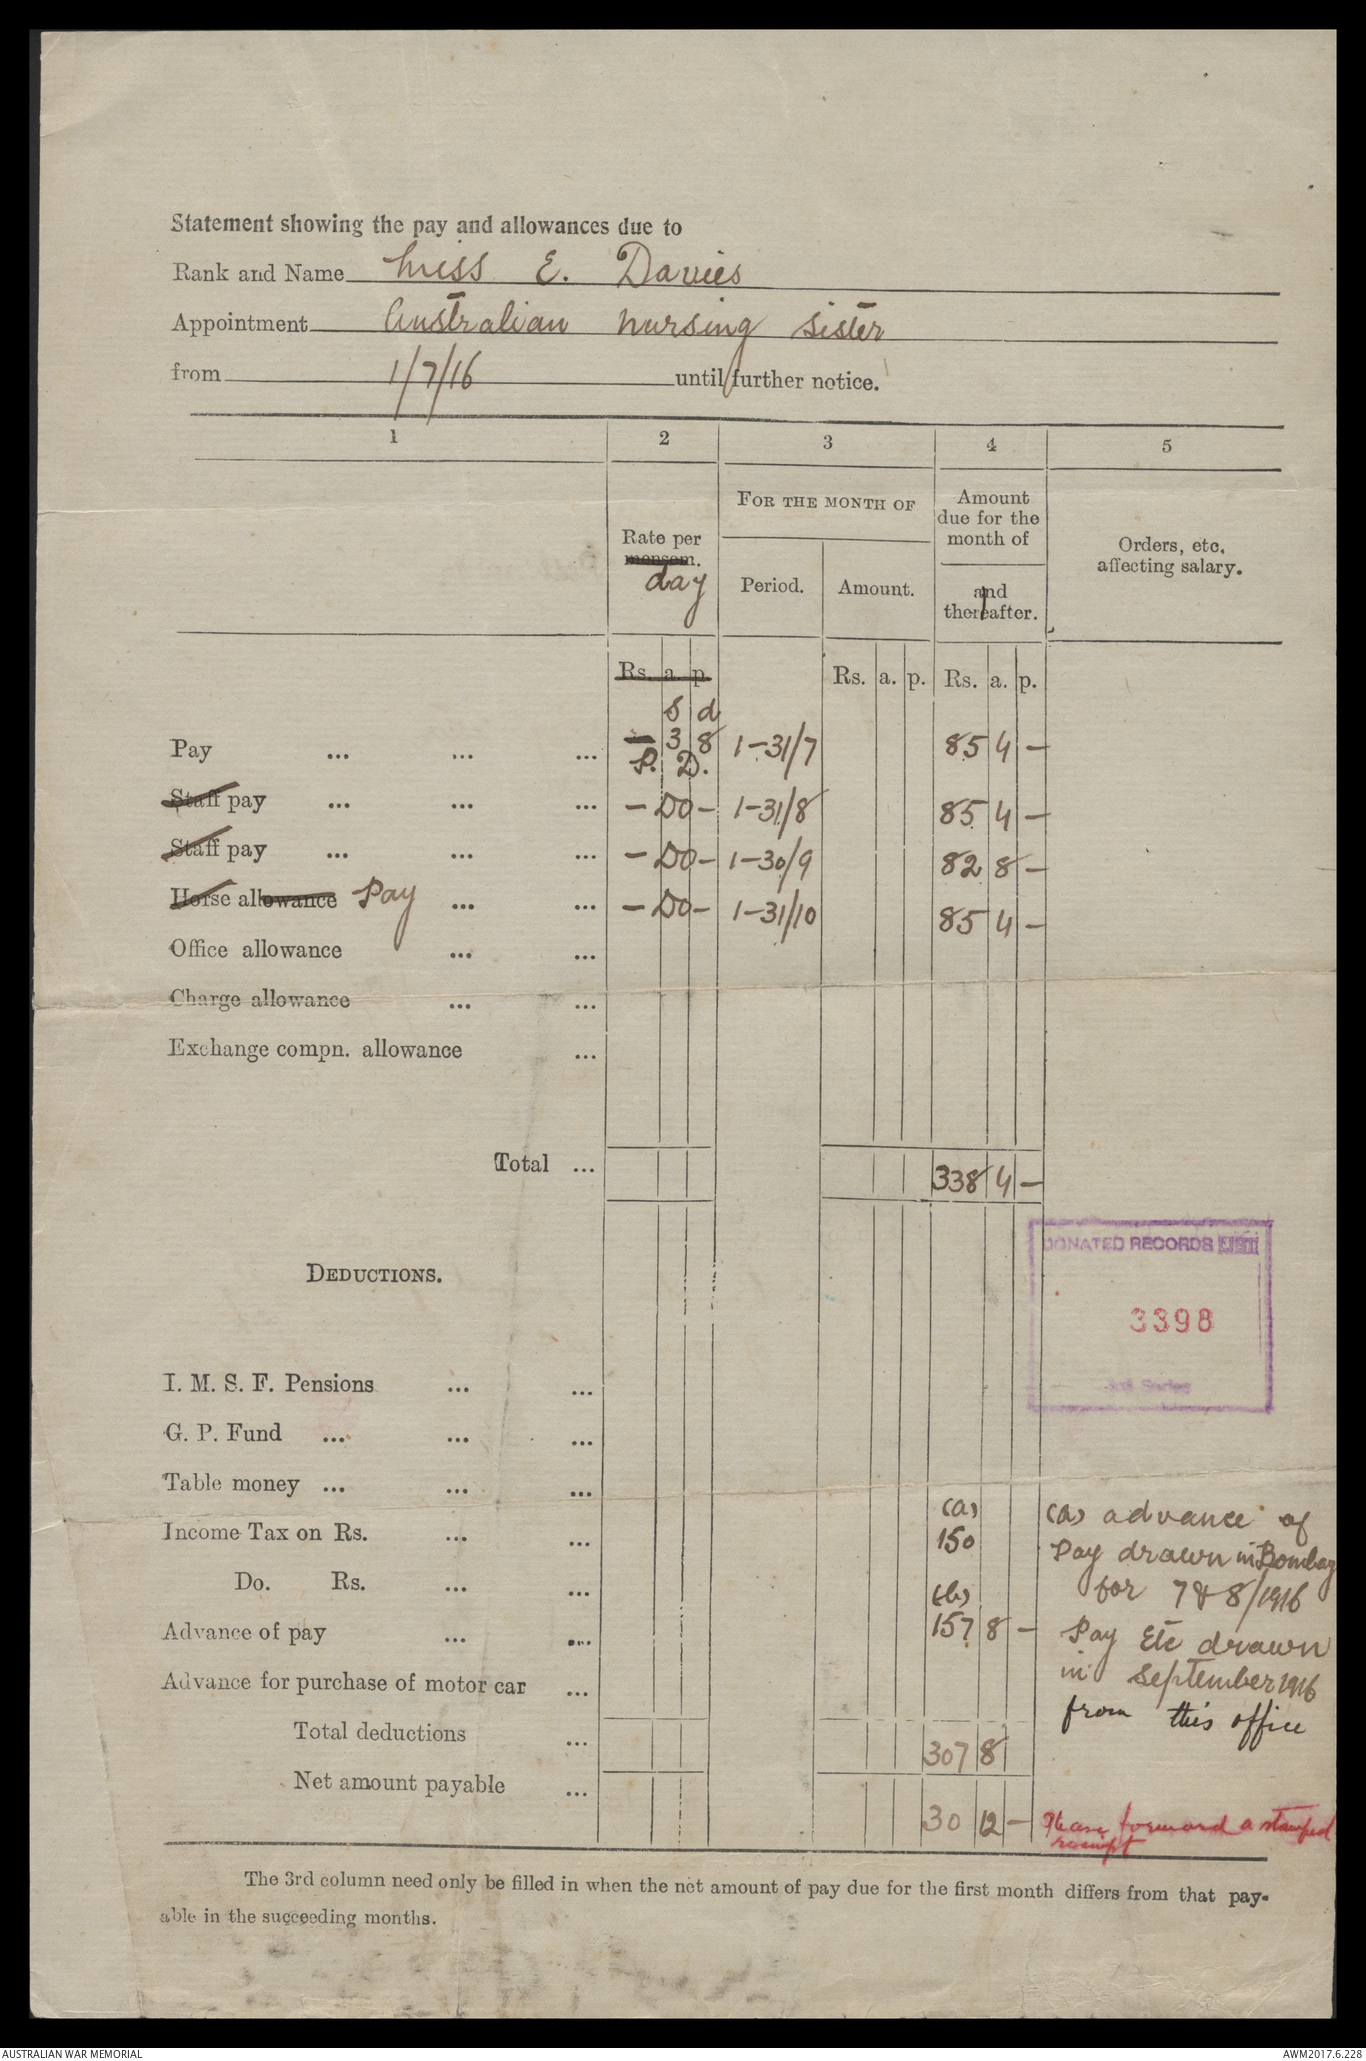 Statement showing the pay and allowances due to
Rank and Name Miss E. Davies
Appointment Australian Nursing Sister
from 1/7/16 until further notice.
1 2 3 4 5
Rate per mensem. day
FOR THE MONTH OF
Period. Amount.
Amount due for the month of and thereafter.
Orders, etc. affecting salary.
Rs. a. p. Rs. a. p. Rs. a. p.
S d
Pay ... ... ... — 3 8 1-31/7 85 4 —
P. D.
Staff pay ... ... ... - Do - 1-31/8 85 4 —
Staff pay ... ... ... - Do - 1-30/9 82 8 —
Horse allowance Pay ... ... - Do - 1-31/10 85 4 —
Office allowance ... ...
Charge allowance ... ...
Exchange compn. allowance ...
Total ... 338 4 —
DONATED RECORDS LIST
3398
Series
DEDUCTIONS.
I. M. S. F. Pensions ... ...
G. P. Fund ... ... ...
Table money ... ... ...
(a) (a) advance of
Income Tax on Rs. ... ... 150 Pay drawn in Bombay
Do. Rs. ... ... (b) for 7 & 8/1916
Advance of pay ... ... 157 8 — Pay Etc drawn
in September 1916
Advance for purchase of motor car ...
from this office
Total deductions ... 307 8
Net amount payable ... 30 12 — Please forward a stamped
receipt
The 3rd column need only be filled in when the net amount of pay due for the first month differs from that pay-
able in the succeeding months.
AUSTRALIAN WAR MEMORIAL AWM2017.6.228